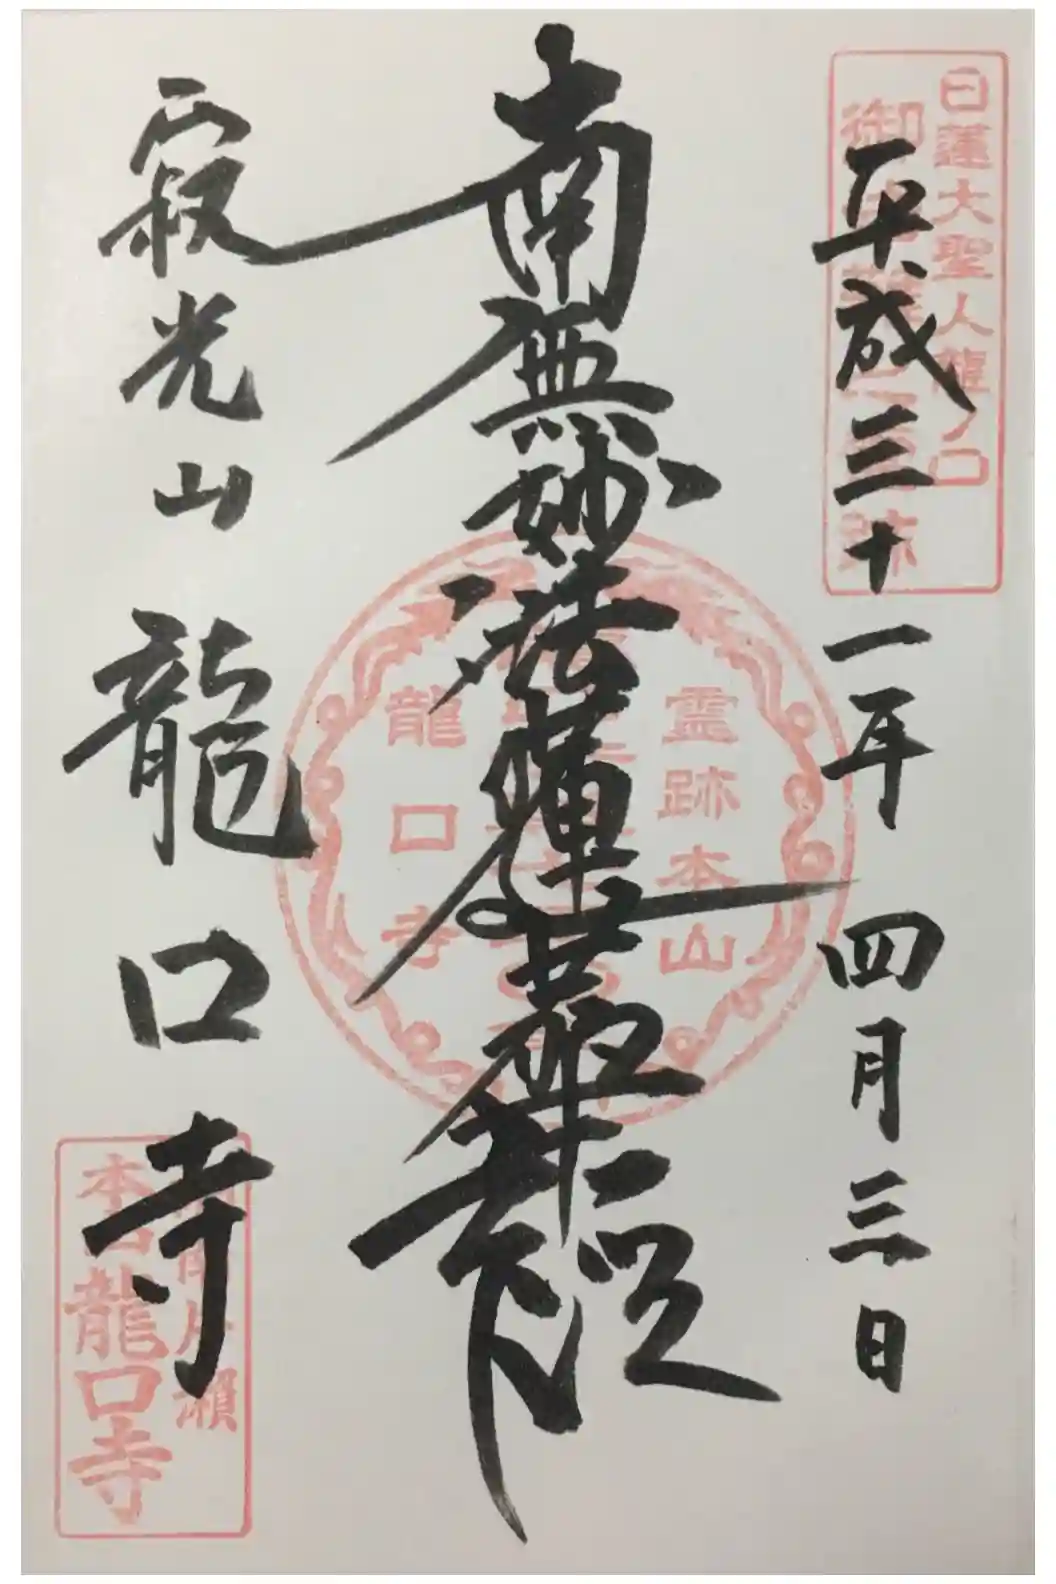 日蓮大聖人龍ノ口
平成三十一年 四月三日
南無妙法蓮華経
霊跡本山
龍口寺
寂光山 龍口寺
本山龍口寺